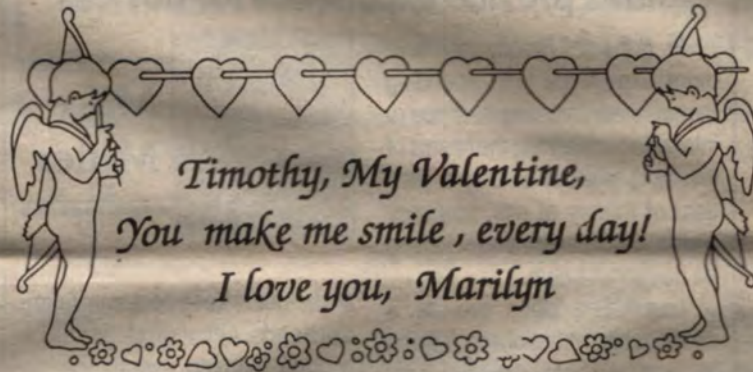 Timothy, My Valentine,
You make me smile , every day!
I love you, Marilyn